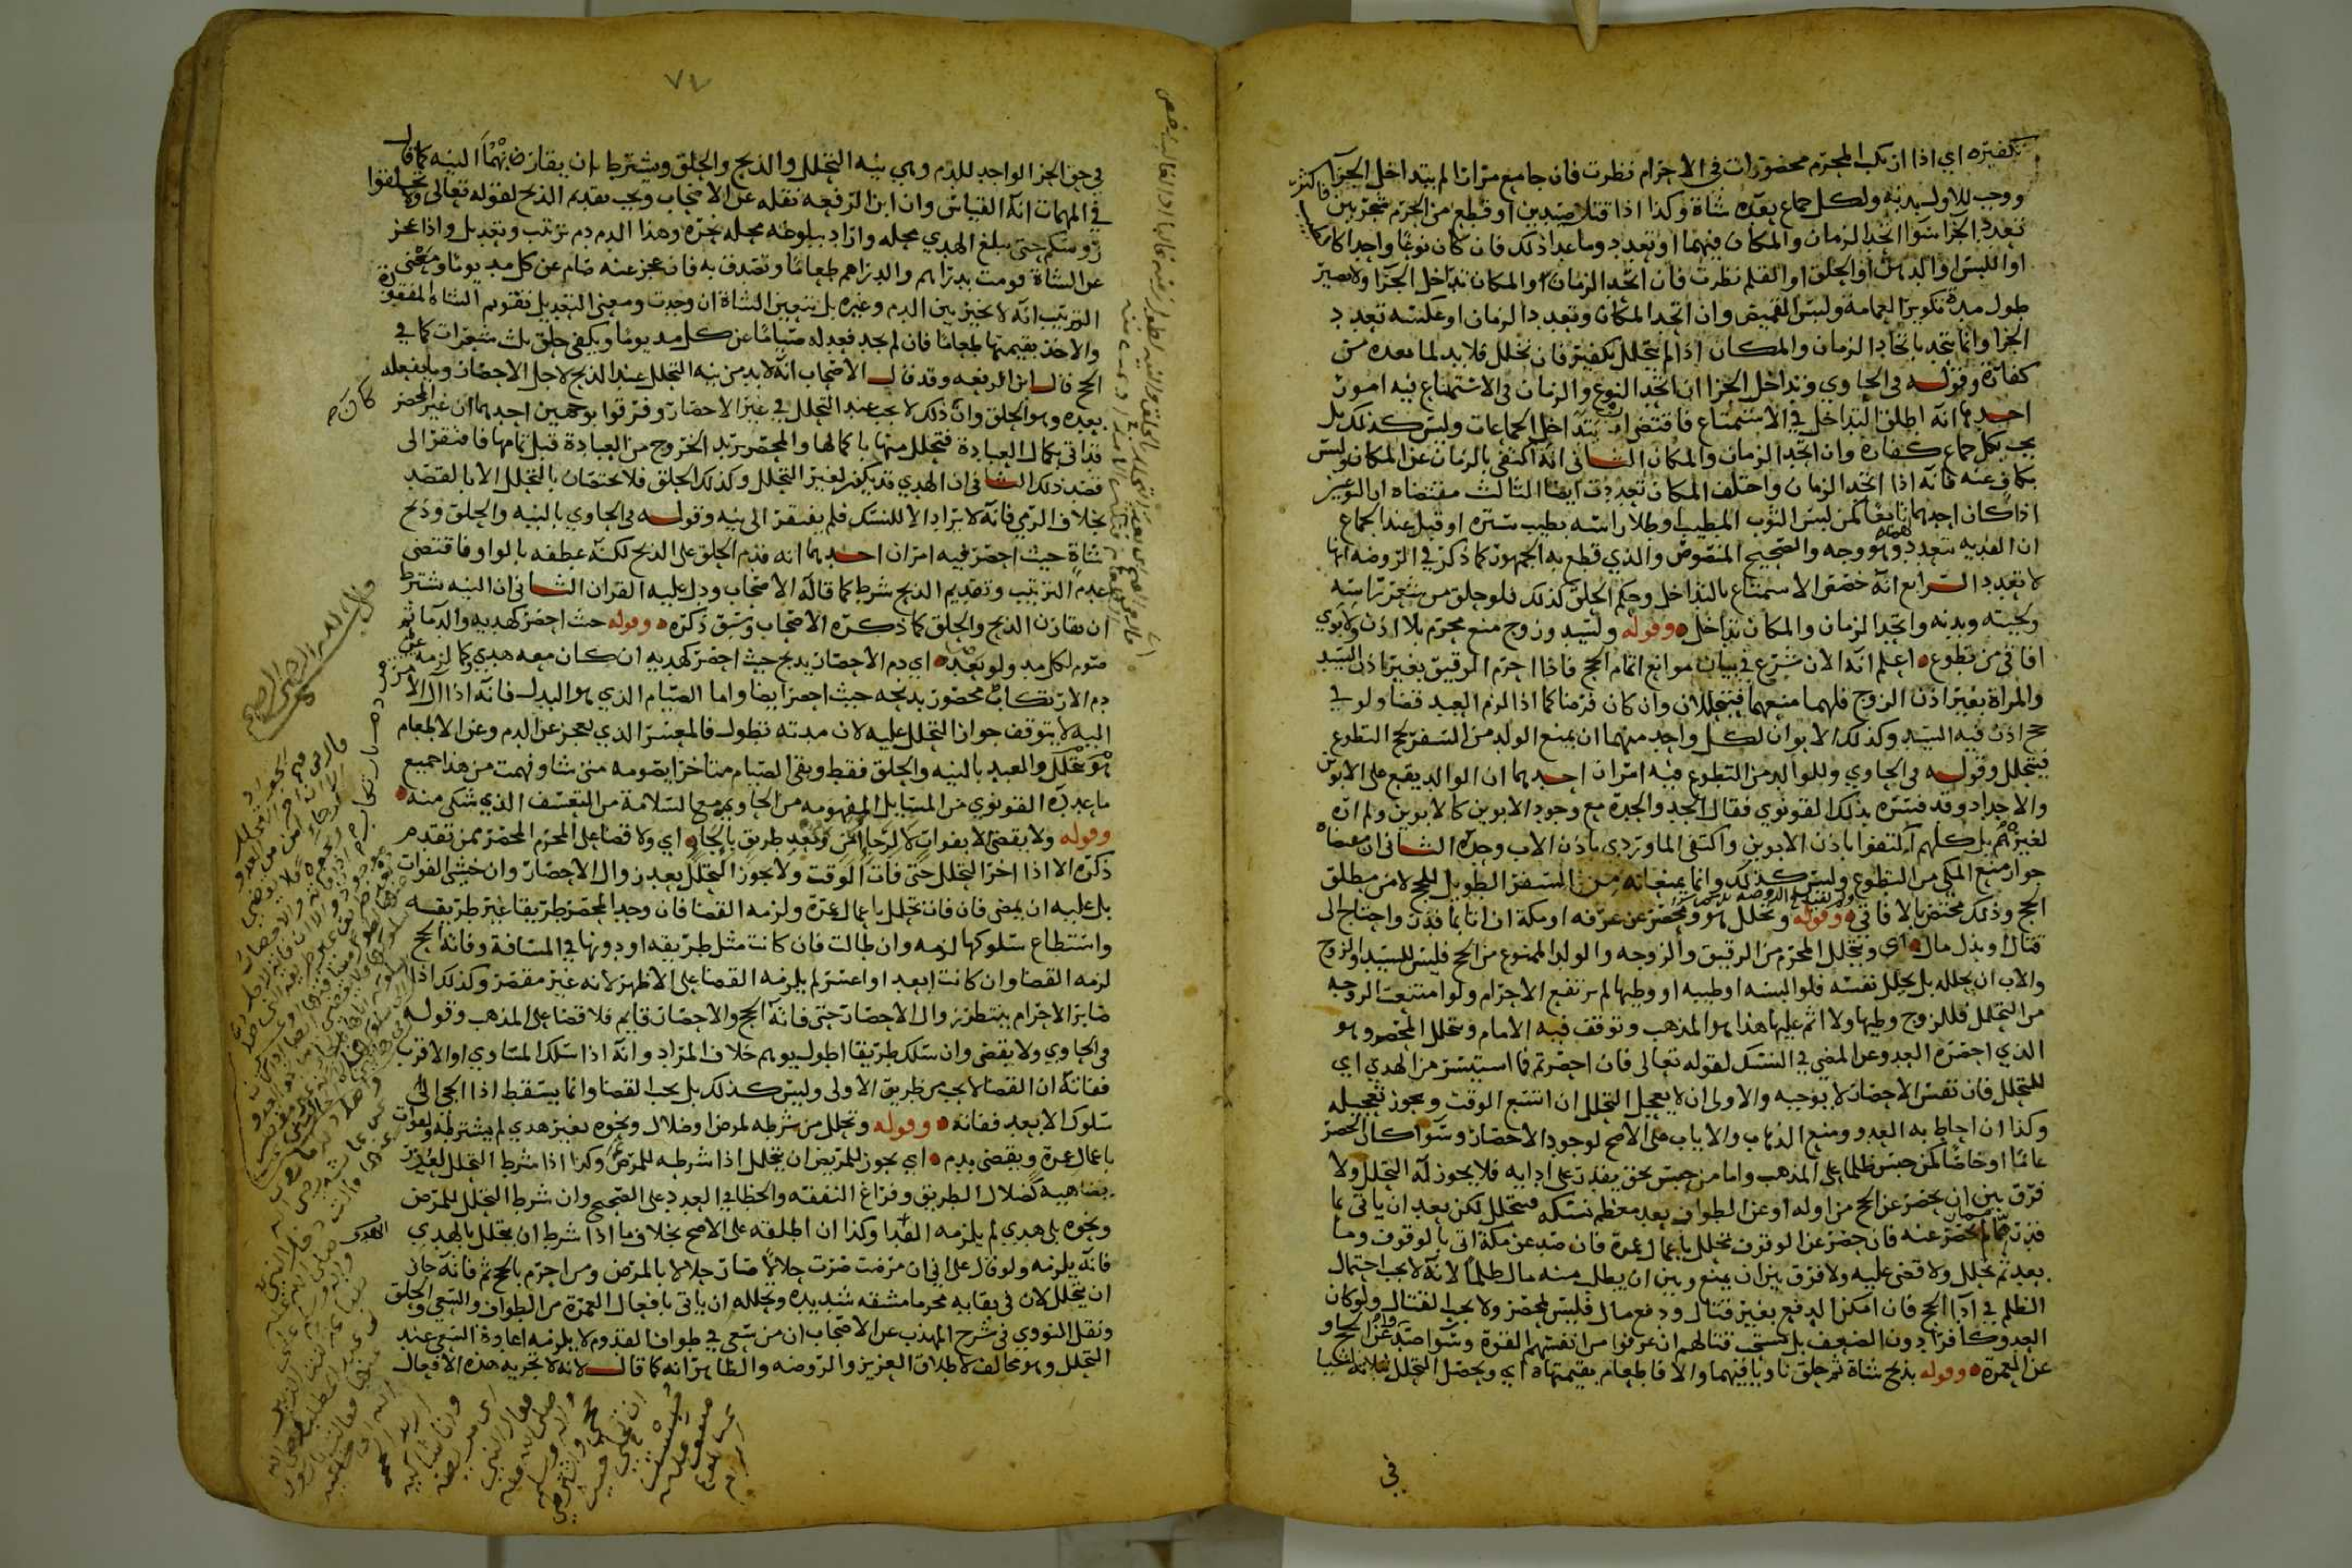 تكفيره اي اذا ارتكب المحرم محضورات في الاحرام نظرت فان جامع مرارا لم يتداخل الجزا
ووجب للاول بدنة ولكل جماع بعده شاة وكذا اذا قتل صيدين او قطع من الحرم شجرتين فاكثر
تعدد الجزا سوا اتحد الزمان والمكان فيهما او تعدد وما عدا ذلك فان كان نوعا واحدا كالطيب
او اللبس او الدهن او الحلق او القلم نظرت فان اتحد الزمان او المكان تداخل الجزا ولا يصير
طول مدة تكوير العمامة ولبس القميص وان اتحد المكان وتعدد الزمان او عكسه تعدد
الجزا وانما يتحد باتحاد الزمان والمكان اذا لم يتخلل تكفير فان تخلل فلا بد لما بعده من
كفارة وقوله في الحاوي وتداخل الجزا ان اتحد النوع والزمان في الاستمتاع فيه امور
احدها انه اطلق التداخل في الاستمتاع فاقتضى تداخل الجماعات وليس كذلك بل
يجب بكل جماع كفارة وان اتحد الزمان والمكان الثاني انه اكتفى بالزمان عن المكان وليس
بكاف عنه فانه اذا اتحد الزمان واختلف المكان تعددت ايضا الثالث مقتضاه ان النوعين
اذا كان احدهما تابعا كمن لبس الثوب المطيب او طلا راسه بطيب ستره او قبل عند الجماع
ان الفدية تتعدد وهو وجه والصحيح المنصوص والذي قطع به الجمهور كما ذكر في الروضة انها
لا تتعدد الرابع انه خصص الاستمتاع بالتداخل وحكم الحلق كذلك فلو حلق من شعر راسه
ولحيته وبدنه واتحد الزمان والمكان تداخل وقوله ولسيد وزوج منع محرم بلا اذن ولابوي
افاقي من تطوع اعلم انه الان شرع في بيان موانع اتمام الحج فاذا احرم الرقيق بغير اذن السيد
والمراة بغير اذن الزوج فلهما منعهما فيتحللان وان كان فرضا كما اذا لزم العبد قضا ولو في
حج اذن فيه السيد وكذلك الابوان لكل واحد منهما ان يمنع الولد من السفر لحج التطوع
فيتحلل وقوله في الحاوي وللوالد من التطوع فيه امران احدهما ان الوالد يقع على الابوين
والاجداد وقد فسره بذلك القونوي فقال الجد والجدة مع وجود الابوين كالابوين ولم اره
لغيرهم بل كلهم اكتفوا باذن الابوين واكتفى الماوردي باذن الاب وحده الثاني ان مقتضاه
جواز منع المكي من التطوع وليس كذلك وانما يمنعانه من السفر الطويل للحج لا من مطلق
الحج وذلك مختص بالافاقي وقوله وتحلل هو ومحصر عن عرفة او مكة ان اتا بما قدر واحتاج الى
قتال او بذل مال اي ويتحلل المحرم من الرقيق والزوجة والولد الممنوع من الحج فليس للسيد والزوج
والاب ان يحلله بل يحلل نفسه فلو البسه او طيبه او وطيها لم يرتفع الاحرام ولو امتنعت الزوجة
من التحلل فللزوج وطيها ولا اثم عليها هذا هو المذهب وتوقف فيه الامام وتحلل المحصر وهو
الذي احصره العدو عن المضي في النسك لقوله تعالى فان احصرتم فما استيسر من الهدي اي
للتحلل فان نفس الاحصار لا يوجبه والاولى ان لا يعجل التحلل ان اتسع الوقت ويجوز تعجيله
وكذا ان احاط به العدو ومنع الذهاب والاياب على الاصح لوجود الاحصار وسوا كان الحصر
عاما او خاصا كمن حبس ظلما على المذهب واما من حبس بحق يقدر على ادايه فلا يجوز له التحلل ولا
فرق بين ان يحصر عن الحج من اوله او عن الطواف بعد معظم نسكه فيتحلل لكن بعد ان ياتي بما
قدر مما لم يحصر عنه فان حصر عن الوقوف تحلل باعمال عمرة فان صد عن مكة اتى بالوقوف وما
بعد ثم تحلل ولا قضى عليه ولا فرق بين ان يمنع وبين ان يطلب منه مال ظلما لانه لا يجب احتمال
الظلم في ادا الحج فان امكن الدفع بغير قتال ودفع مال فليس بمحصر ولا يجب القتال ولو كان
العدو كافرا دون الضعف بل يستحب قتالهم ان عرفوا من انفسهم القوة وسوا صد عن الحج او
عن العمرة وقوله بذبح شاة ثم حلق ناويا فيهما والا فاطعام بقيمتها اي ويحصل التحلل
في
٧٤
في حق الحر الواجد للدم وهي بنية التحلل والذبح والحلق ويشترط ان يقارنهما النية كما قال
في المهمات انه القياس وان ابن الرفعة نقله عن الاصحاب ويجب تقديم الذبح لقوله تعالى ولا تحلقوا
رؤوسكم حتى يبلغ الهدي محله واراد ببلوغه محله نحره وهذا الدم دم ترتيب وتعديل واذا عجز
عن الشاة قومت بدراهم والدراهم طعاما وتصدق به فان عجز عنه صام عن كل مد يوما ومعنى
الترتيب انه لا يتخير بين الدم وغيره بل تتعين الشاة ان وجدت ومعنى التعديل تقويم الشاة المفقودة
والاخذ بقيمتها طعاما فان لم يجد فعدله صياما عن كل مد يوما ويكفي حلق ثلث شعرات كما في
الحج قال ابن الرفعة وقد قال الاصحاب انه لابد من نية التحلل عند الذبح لاجل الاحصار وبما يفعله
بعده وهو الحلق وان ذلك لا يجب عند التحلل في غير الاحصار وفرقوا بوجهين احدهما ان غير المحصر
قد اتى بكمال العبادة فتحلل منها باكمالها والمحصر يريد الخروج من العبادة قبل تمامها فافتقر الى
قصد ذلك الثاني ان الهدي قد يكون لغير التحلل وكذلك الحلق فلا يختصان بالتحلل الا بالقصد
بخلاف الرمي فانه لا يراد الا للنسك فلم يفتقر الى نية وقوله في الحاوي بالنية والحلق وذبح
شاة حيث احصر فيه امران احدهما انه قدم الحلق على الذبح لكنه عطفه بالواو فاقتضى
عدم الترتيب وتقديم الذبح شرط كما قاله الاصحاب ودل عليه القران الثاني ان النية شرط
ان تقارن الذبح والحلق كما ذكره الاصحاب وسبق ذكره وقوله حيث احصر كهديه والدما ثم
صوم لكل مد ولو بعد اي دم الاحصار يذبح حيث احصر كهديه ان كان معه هدي وكما لزمه من
دم الارتكاب محضور يذبحه حيث احصر ايضا واما الصيام الذي هو البدل فانه اذا ال الامر
اليه لا يتوقف جواز التحلل عليه لان مدته تطول فالمعسر الذي يعجز عن الدم وعن الاطعام
هو يتحلل والعبد بالنية والحلق فقط وبقي الصيام متاخرا يصومه متى شا وفهمت من هذا جميع
ما عده القونوي من المسايل المفهومه من الحاوي مع السلامة من التعسف الذي شكى منه
وقوله ولا يقضى لا بفوات لا لرجا امن وبعد طريق بالجا اي ولا قضا على المحرم المحصر ممن تقدم
ذكره الا اذا اخر التحلل حتى فات الوقت ولا يجوز التحلل بعد زوال الاحصار وان خشي الفوات
بل عليه ان يمضي فان فات تحلل باعمال عمرة ولزمه القضا فان وجد المحصر طريقا غير طريقه
واستطاع سلوكها لزمه وان طالت فان كانت مثل طريقه او دونها في المسافة وفاته الحج
لزمه القضا وان كانت ابعد او اعسر لم يلزمه القضا على الاظهر لانه غير مقصر وكذلك اذا
صابر الاحرام ينتظر زوال الاحصار حتى فاته الحج والاحصار قايم فلا قضا على المذهب وقوله
في الحاوي ولا يقضي وان سلك طريقا اطول يوهم خلاف المراد وانه اذا سلك المساوي او الاقرب
ففاته ان القضا لا يجب من طريق الاولى وليس كذلك بل يجب القضا وانما يسقط اذا الجي الى
سلوك الابعد ففاته وقوله وتحلل من شرطه لمرض او ضلال ونحوه بغير هدي لم يشترطه ولفوات
باعمال عمرة ويقضي بدم اي يجوز للمريض ان يتحلل اذا شرطه للمرض وكذا اذا شرط التحلل لعذر
يضاهيه كضلال الطريق وفراغ النفقة والخطا في العدد على الصحيح وان شرط التحلل للمرض
ونحوه بلا هدي لم يلزمه الفدا وكذا ان اطلقه على الاصح بخلاف ما اذا شرط ان يتحلل بالهدي
فانه يلزمه ولو قال على اني ان مرضت صرت حلالا صار حلالا بالمرض ومن احرم بالحج ثم فاته جاز
ان يتحلل لان في بقايه محرما مشقه شديده وتحلله ان ياتي بافعال العمرة من الطواف والسعي والحلق
ونقل النووي في شرح المهذب عن الاصحاب ان من سعى في طواف القدوم لا يلزمه اعادة السعي عند
التحلل وهو مخالف لاطلاق العزيز والروضه والظاهر انه كما قال لانه لا تجزيه هذه الافعال